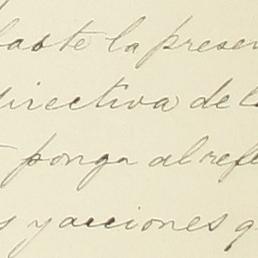 baste la presen
directiva de l
ponga al refe
s y acciones q